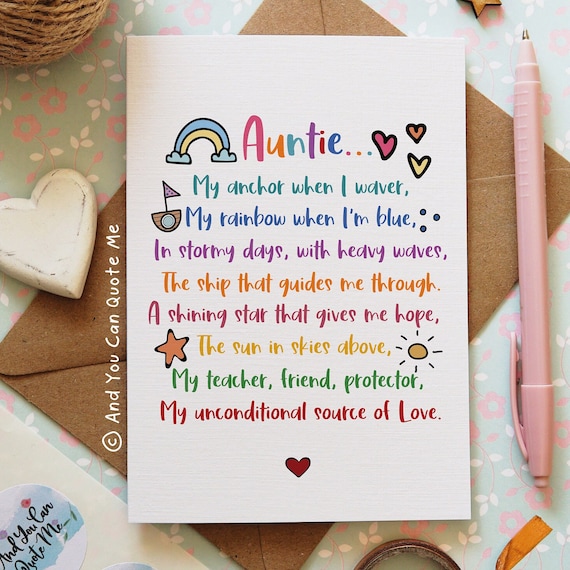 Auntie...
My anchor when I waver,
My rainbow when I'm blue,
In stormy days, with heavy waves,
The ship that guides me through.
A shining star that gives me hope,
The sun in skies above,
My teacher, friend, protector,
My unconditional source of Love.
© And You Can Quote Me
And You Can
Quote Me